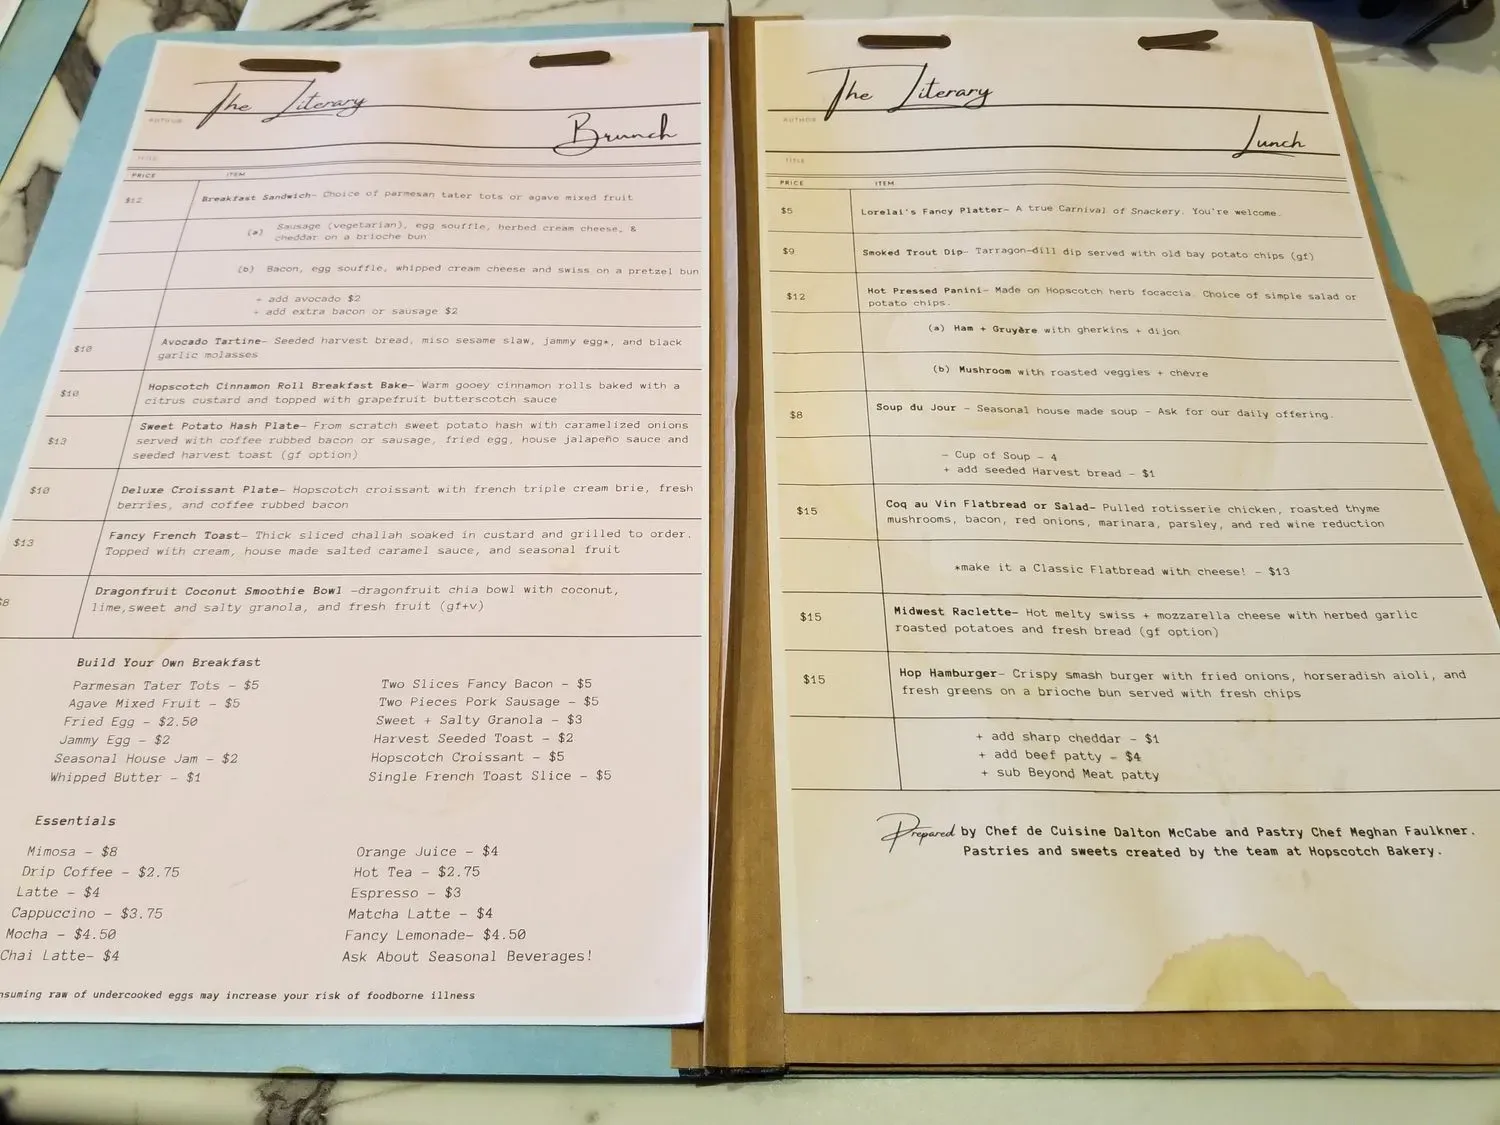 The Literary
AUTHOR
Brunch
TITLE
PRICE ITEM
$12 Breakfast Sandwich- Choice of parmesan tater tots or agave mixed fruit
(a) Sausage (vegetarian), egg souffle, herbed cream cheese, &
cheddar on a brioche bun
(b) Bacon, egg souffle, whipped cream cheese and swiss on a pretzel bun
+ add avocado $2
+ add extra bacon or sausage $2
$10 Avocado Tartine- Seeded harvest bread, miso sesame slaw, jammy egg*, and black
garlic molasses
$10 Hopscotch Cinnamon Roll Breakfast Bake- Warm gooey cinnamon rolls baked with a
citrus custard and topped with grapefruit butterscotch sauce
$13 Sweet Potato Hash Plate- From scratch sweet potato hash with caramelized onions
served with coffee rubbed bacon or sausage, fried egg, house jalapeño sauce and
seeded harvest toast (gf option)
$10 Deluxe Croissant Plate- Hopscotch croissant with french triple cream brie, fresh
berries, and coffee rubbed bacon
$13 Fancy French Toast- Thick sliced challah soaked in custard and grilled to order.
Topped with cream, house made salted caramel sauce, and seasonal fruit
$8 Dragonfruit Coconut Smoothie Bowl -dragonfruit chia bowl with coconut,
lime,sweet and salty granola, and fresh fruit (gf+v)
Build Your Own Breakfast
Parmesan Tater Tots - $5
Agave Mixed Fruit - $5
Fried Egg - $2.50
Jammy Egg - $2
Seasonal House Jam - $2
Whipped Butter - $1
Two Slices Fancy Bacon - $5
Two Pieces Pork Sausage - $5
Sweet + Salty Granola - $3
Harvest Seeded Toast - $2
Hopscotch Croissant - $5
Single French Toast Slice - $5
Essentials
Mimosa - $8
Drip Coffee - $2.75
Latte - $4
Cappuccino - $3.75
Mocha - $4.50
Chai Latte- $4
Orange Juice - $4
Hot Tea - $2.75
Espresso - $3
Matcha Latte - $4
Fancy Lemonade- $4.50
Ask About Seasonal Beverages!
nsuming raw of undercooked eggs may increase your risk of foodborne illness
The Literary
AUTHOR
Lunch
TITLE
PRICE ITEM
$5 Lorelai's Fancy Platter- A true Carnival of Snackery. You're welcome.
$9 Smoked Trout Dip- Tarragon-dill dip served with old bay potato chips (gf)
$12 Hot Pressed Panini- Made on Hopscotch herb focaccia. Choice of simple salad or
potato chips.
(a) Ham + Gruyère with gherkins + dijon
(b) Mushroom with roasted veggies + chèvre
$8 Soup du Jour - Seasonal house made soup - Ask for our daily offering.
- Cup of Soup - 4
+ add seeded Harvest bread - $1
$15 Coq au Vin Flatbread or Salad- Pulled rotisserie chicken, roasted thyme
mushrooms, bacon, red onions, marinara, parsley, and red wine reduction
*make it a Classic Flatbread with cheese! - $13
$15 Midwest Raclette- Hot melty swiss + mozzarella cheese with herbed garlic
roasted potatoes and fresh bread (gf option)
$15 Hop Hamburger- Crispy smash burger with fried onions, horseradish aioli, and
fresh greens on a brioche bun served with fresh chips
+ add sharp cheddar - $1
+ add beef patty - $4
+ sub Beyond Meat patty
Prepared by Chef de Cuisine Dalton McCabe and Pastry Chef Meghan Faulkner.
Pastries and sweets created by the team at Hopscotch Bakery.